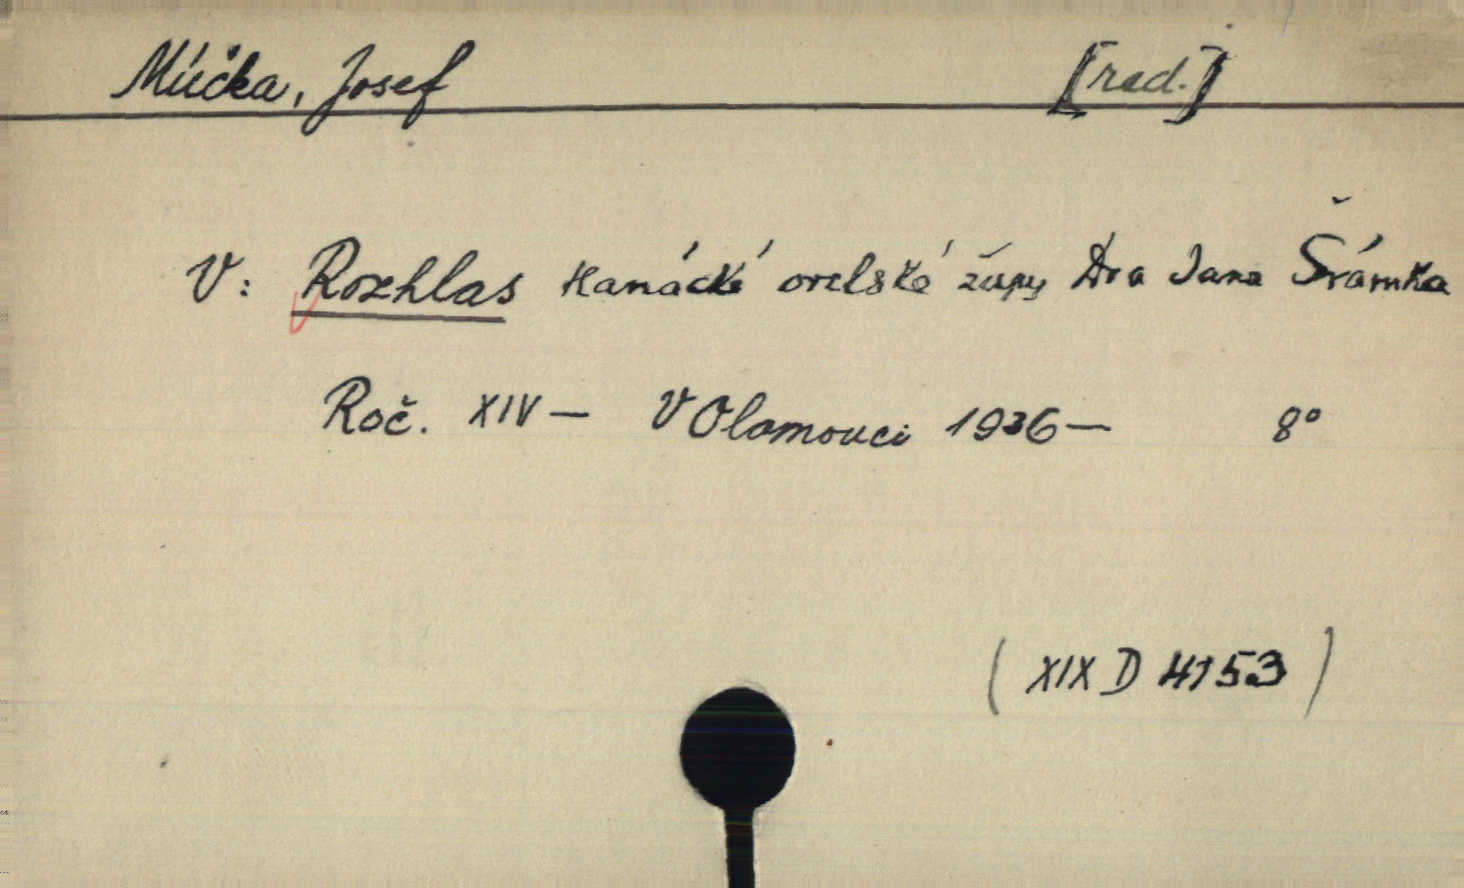 Múčka, Josef [red.]
V: Rozhlas Hanácké orelské župy Dra Jana Šrámka
Roč. XIV — V Olomouci 1936 — 8°
( XIX D 4153 )